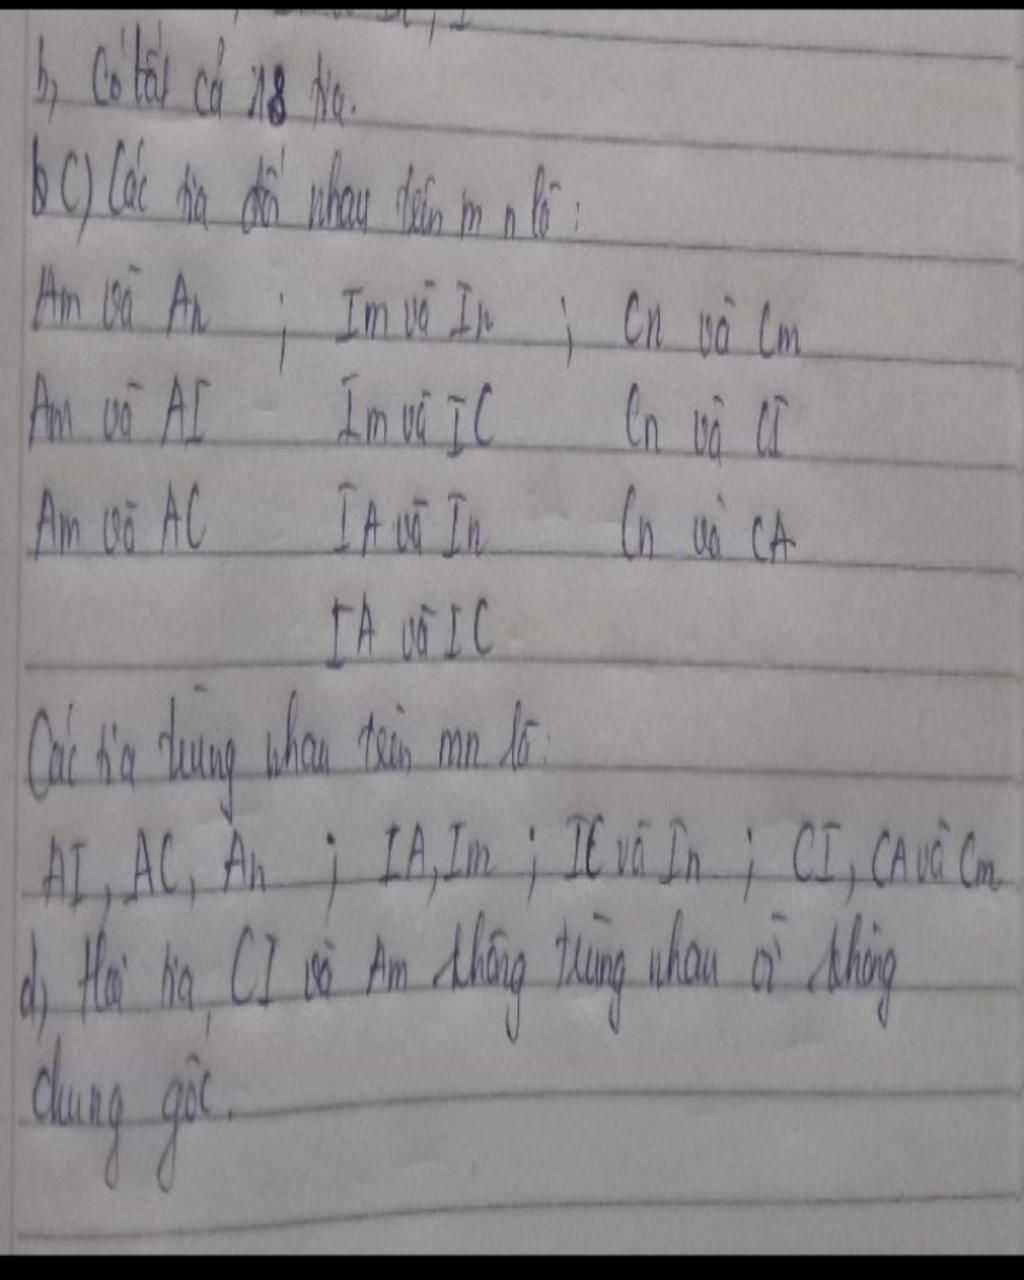 b, Có tất cả 18 tia.
c) Các tia đối nhau trên mn là:
Am và An ; Im và In ; Cn và Cm
Am và AI Im và IC Cn và CI
Am và AC IA và In Cn và CA
IA và IC
Các tia trùng nhau trên mn là:
AI, AC, An ; IA, Im ; IC và In ; CI, CA và Cm
d, Hai tia CI và Am không trùng nhau vì không
chung gốc.